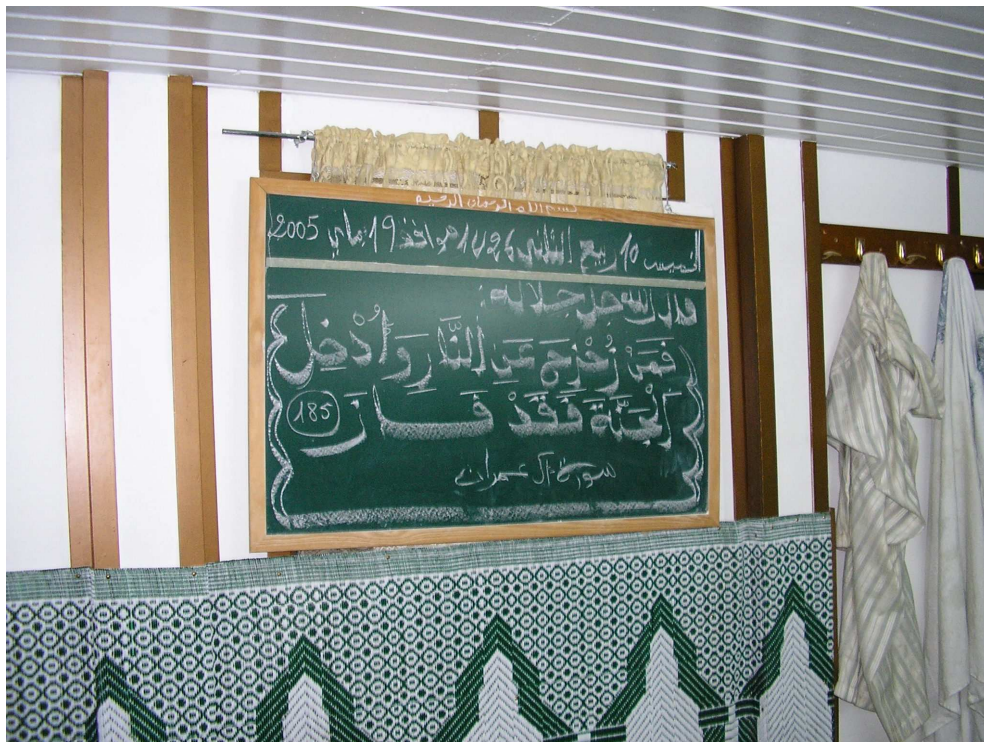 بسم الله الرحمان الرحيم
الخميس 10 ربيع الثاني 1426 موافق 19 ماي 2005
قال الله جل جلاله:
فَمَنْ زُحْزِحَ عَنِ النَّارِ وَأُدْخِلَ
الْجَنَّةَ فَقَدْ فَازَ (185)
سورة آل عمران